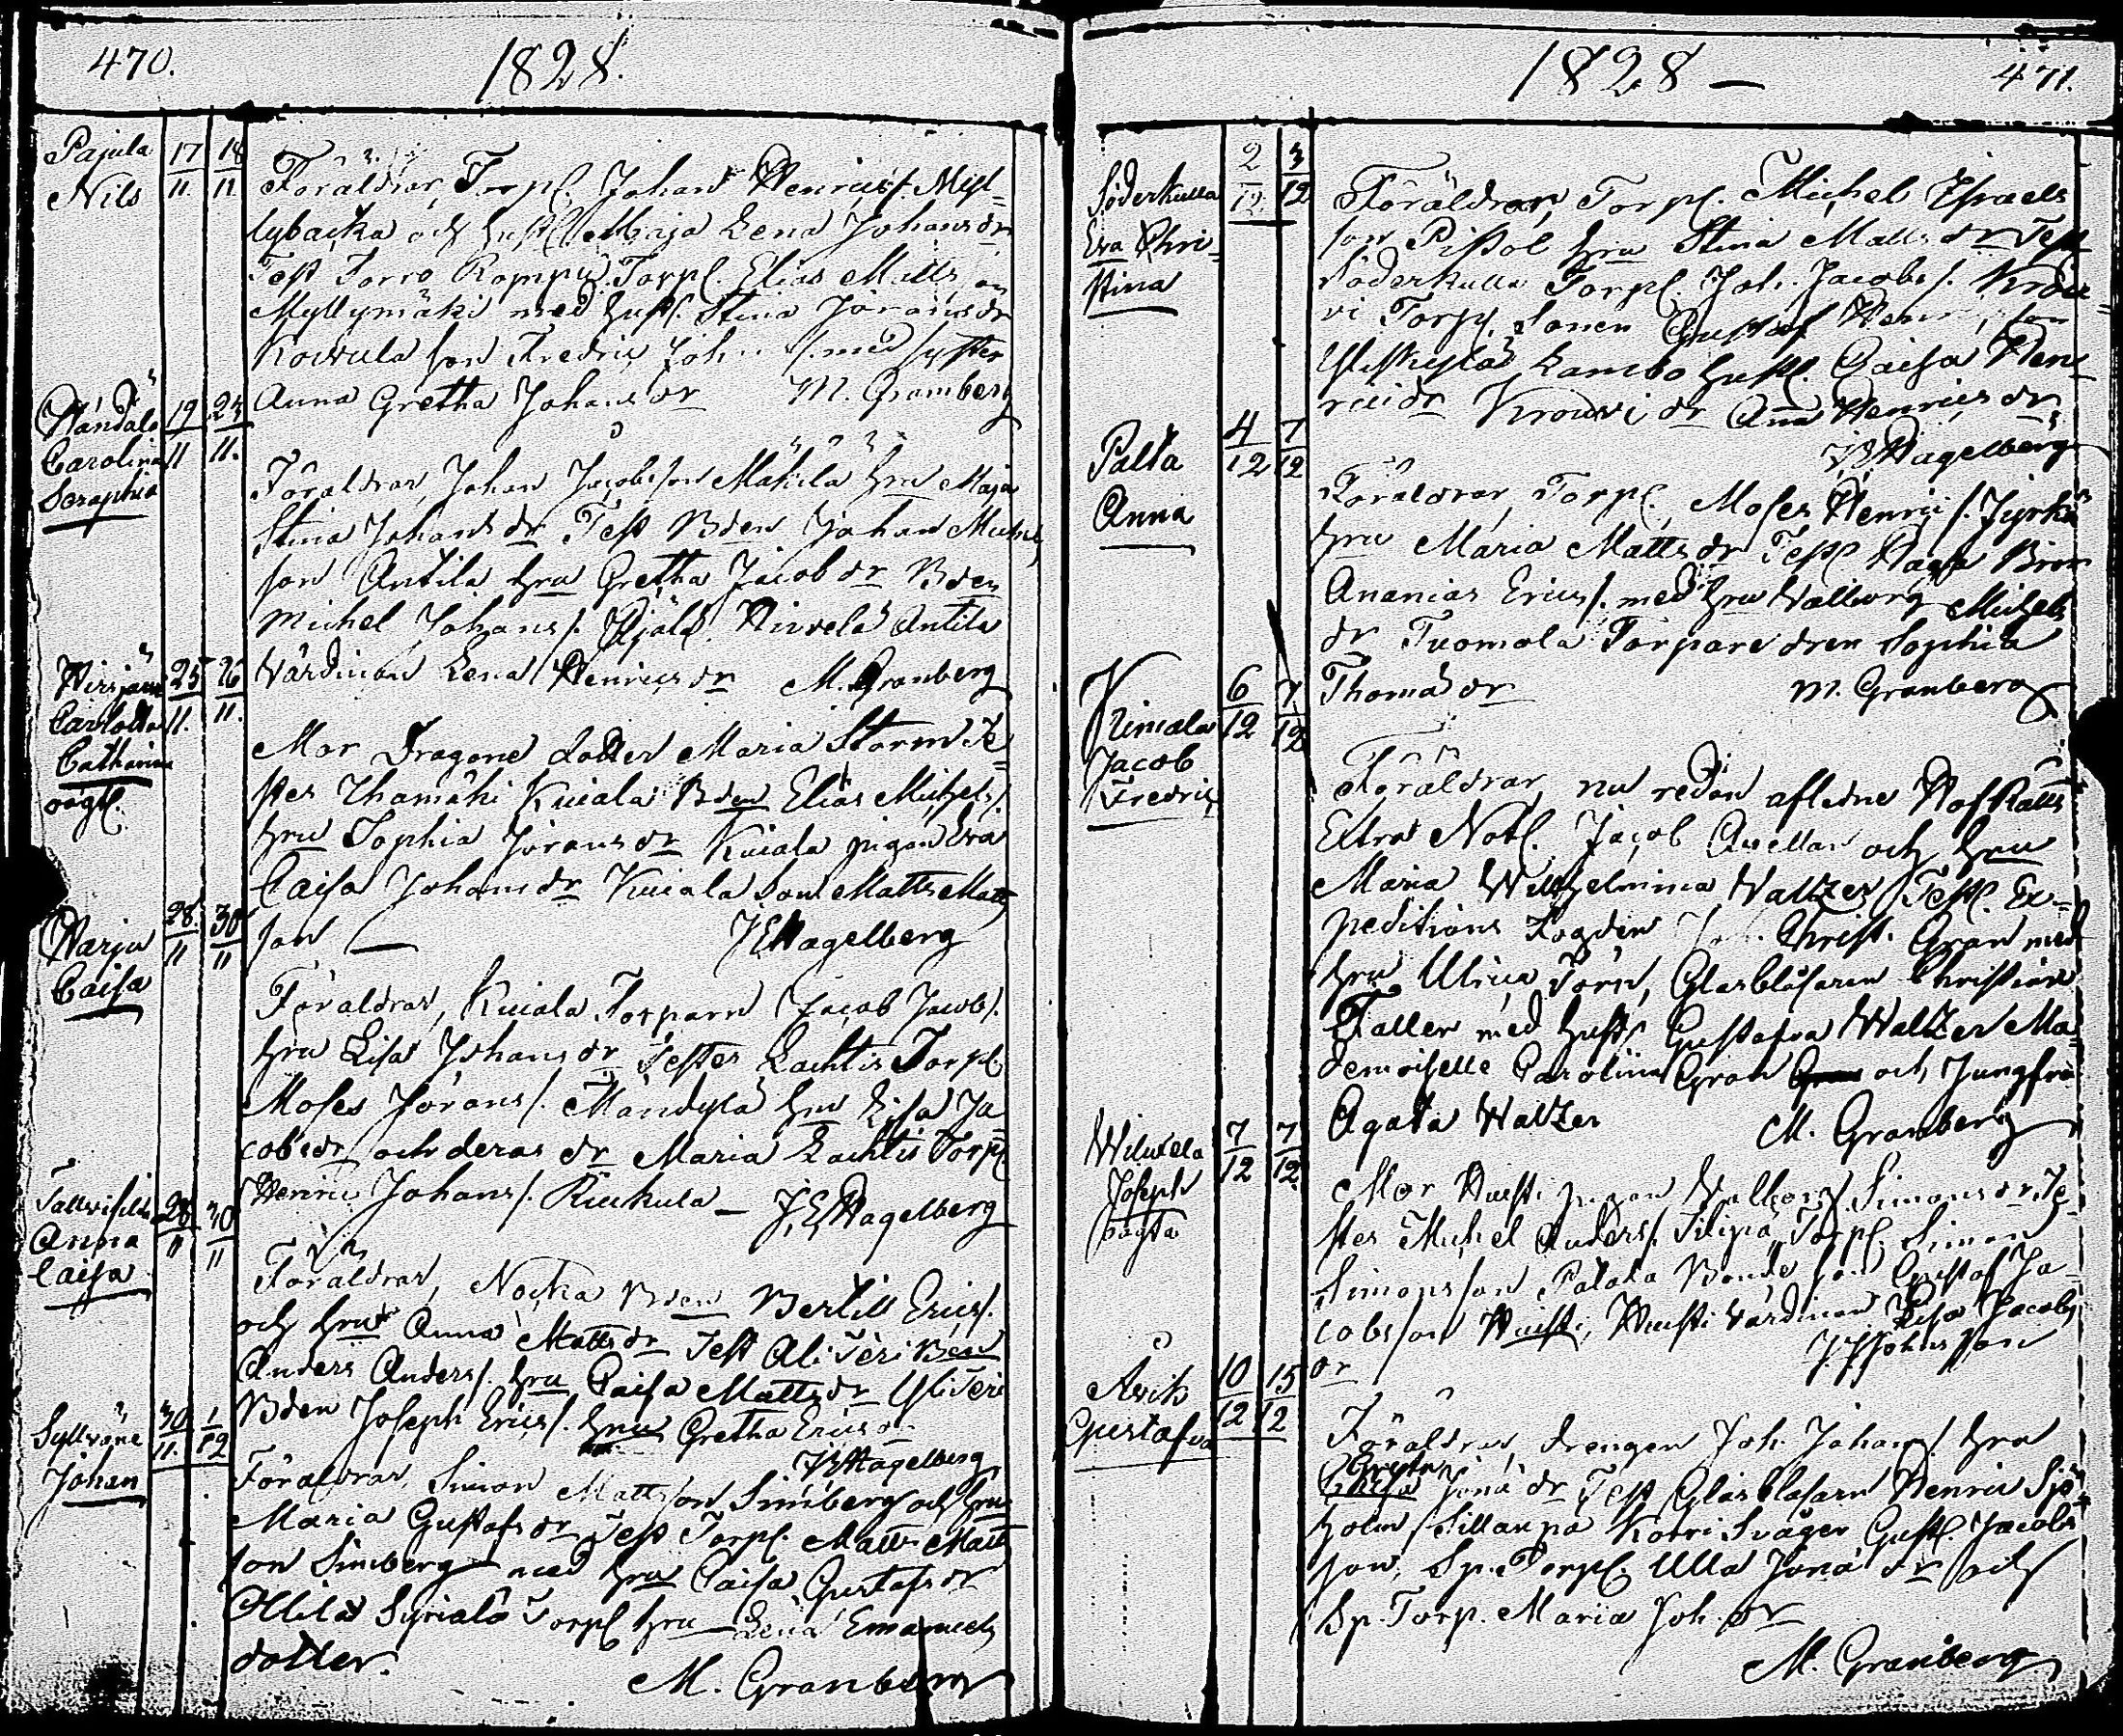 470.
1828.
Pajula
Nils
17 18
11. 11.
Föräldrar, Torp. Johan Henrics. Myl=
lybacka och hust. Maja Lena Johans dr
Test Torro Romppu Torp. Elias Matts on
Myllymäki med hust. Stina Jörans dr
Koivula son Fredric Joh. s. med syster
Anna Gretha Johans dr M. Granberg
Händälä
Carolina
Seraphia
19 23
11 11.
Föräldrar, Johan Jacobsson Mäkilä hru Maja
Stina Johans dr Test Bden Johan Michels
son Antila hru Gretha Jacob dr Bden
Michel Johans s. Ojala Hirvelä Antila
Värdinan Lena Henrics dr M. Granberg
Hirsjärvi
Carlotta
Catharina
oägt.
25 26
11. 11.
Mor Dragone dotter Maria Storm Te=
stes Ihamäki Kuiala Bden Elias Michels s.
hru Sophia Jörans dr Kuiala pigan Eva
Caisa Johans dr Kuiala Son Matts Matts
son J E Hagelberg
Harju
Caisa
28 30
11 11
Föräldrar, Kuiala Torparn Jacob Jacobs.
hru Lisa Johans dr Testes Lachtis Torp.
Moses Jörans s. Mändylä hru Lisa Ja
cobs dr och deras dr Maria Lachtis Torp.
Henric Johans s. Kiukula J. E Hagelberg
Anna
Caisa
28 30
11 11
Föräldrar, Nocka Bden Bertill Erics s.
och hru Anna Matts dr Test Ali Teri Bden
Anders Anders s. hru Caisa Matts dr Yli Teri
Bden Joseph Erics s. hru Gretha Erics dr
J E Hagelberg
Syllvöne
Johan
30 1
11. 12
Föräldrar, Simon Mattsson Simberg och hru
Maria Gustafs dr Test Torp. Matts Matts
son Simberg med hru Caisa Gustafs dr
Ollila Syriälä Torp. hru Lena Emanuels
dotter. M. Granberg
1828 — 471.
Söderkulla
Eva Chri=
stina
2 3
12 12
Föräldrar, Torp. Michel Israels
son Pissol hru Stina Matts dr Test
Söderkulla Torp. Joh. Jacobs s. Krou=
vi Torp. Sonen Gustaf Henr. son
Lambo hust. Caisa Hen=
rics dr Krouvi dr Ana Henrics dr
J E Hagelberg
Palta
Anna
4 7
12 12
Föräldrar, Torp. Moses Henric s. Jyrkä
hru Maria Matts dr Test. Bror
Ananias Erics s. med hru Vallborg Michels
dr Tuomola Torpare dren Sophia
Thomas dr M. Granberg
Kimala
Jacob
Fredric
6 7
12 12
Föräldrar, nu redan aflidne HofRätts
Extra Not. Jacob Avellan och hru
Maria Willhelmina Waltzer Test. Ex=
peditions Fogden Joh. Christ. Gran med
hru Ulrica Törn, Glasblåsaren Christian
Faller med hust. Gustafva Waltzer Ma
demoiselle Carolina Gran och Jungfru
Agata Waltzer M. Granberg
Joseph
oägta
7 7
12 12.
Mor Huisti pigan Vallborg Simons dr Te=
stes Michel Anders s. Torp. Simon
Simonsson Palata Bonde son Gustaf Ja
cobsson Huisti, Huisti värdinan Lisa Jacobs
dr J. Johnsson
Avik
Gustafva
10 15
12 12
Föräldrar, drengen Joh. Johans s. hru
Greta Jona dr Test Glasblåsarn Henric Sjö=
holm Sillanpä Korri Svåger Gust. Jacobs
son, Sp. Torp. Ulla Jona dr och
Sp. Torp. Maria Joh. dr
M. Granberg